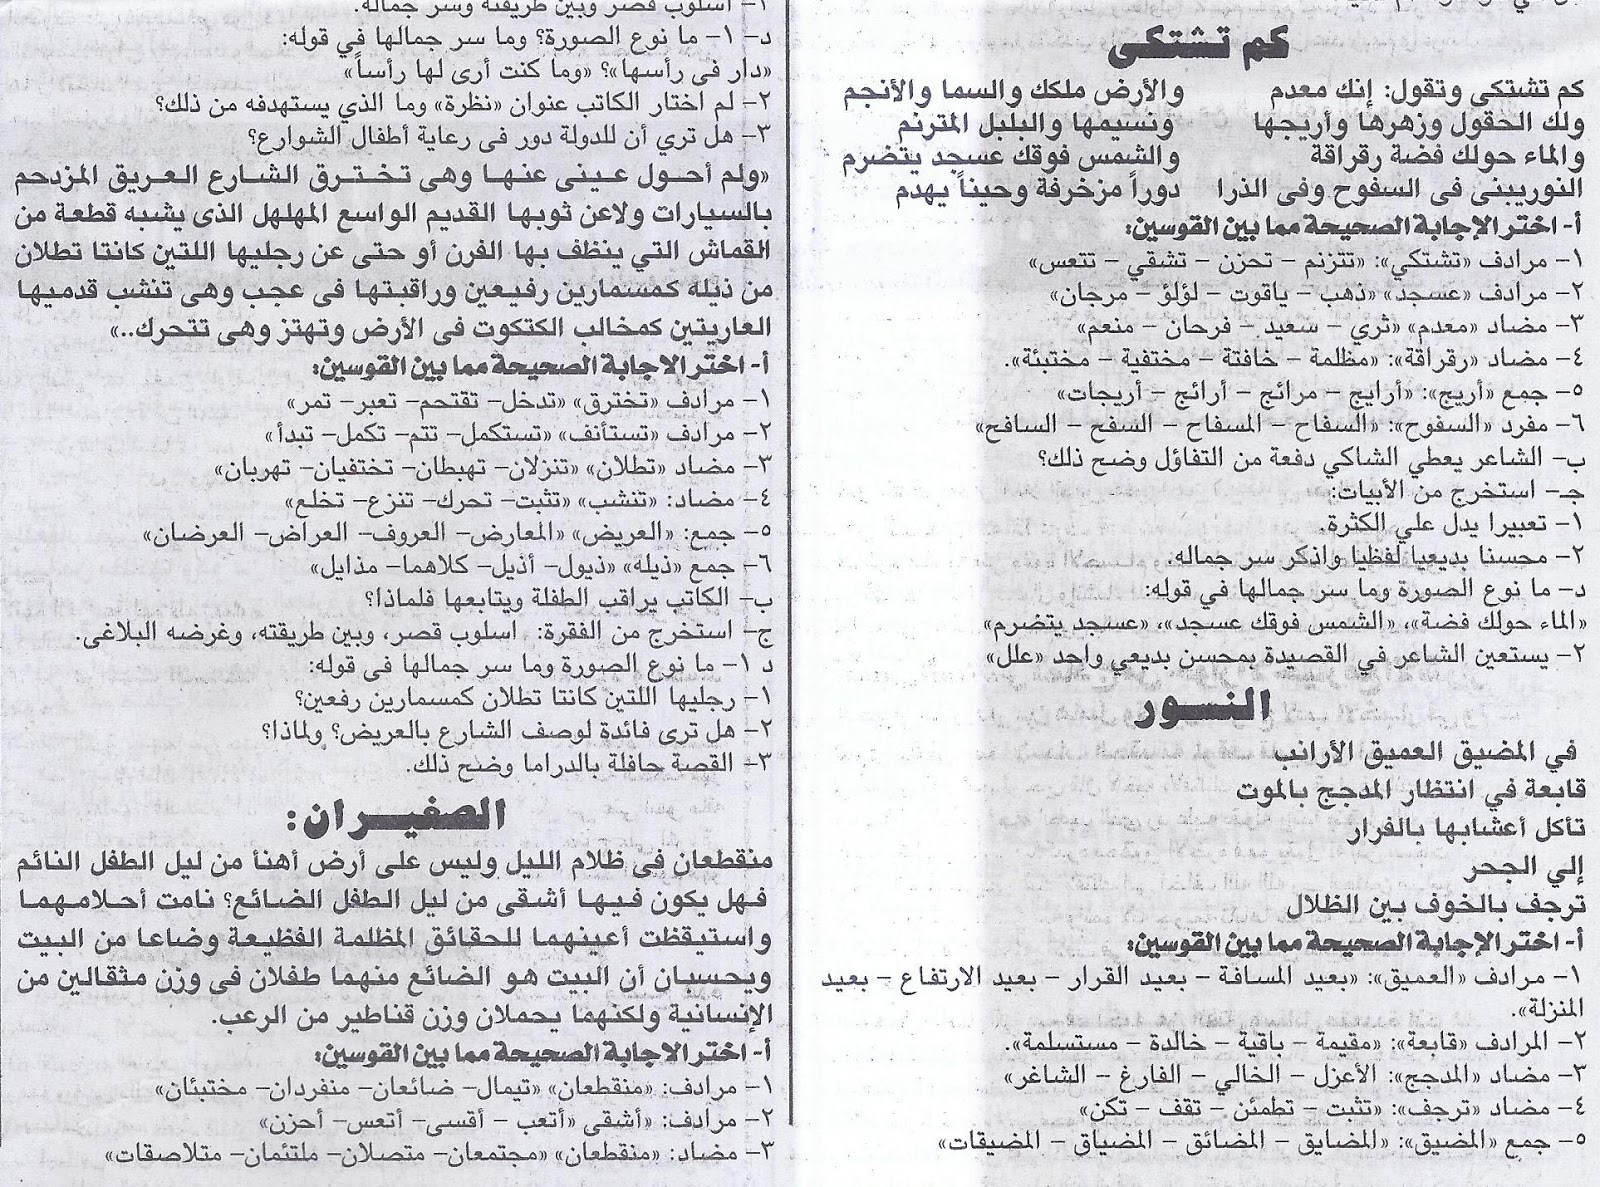 كم تشتكى
كم تشتكى وتقول: إنك معدم والأرض ملكك والسما والأنجم
ولك الحقول وزهرها وأريجها ونسيمها والبلبل المترنم
والماء حولك فضة رقراقة والشمس فوقك عسجد يتضرم
النوريبنى فى السفوح وفى الذرا دوراً مزخرفة وحيناً يهدم
أ- اختر الإجابة الصحيحة مما بين القوسين:
١- مرادف «تشتكي»: «تتزنم - تحزن - تشقي - تتعس»
٢- مرادف «عسجد» «ذهب - ياقوت - لؤلؤ - مرجان»
٣- مضاد «معدم» «ثري - سعيد - فرحان - منعم»
٤- مضاد «رقراقة»: «مظلمة - خافتة - مختفية - مختبئة».
٥- جمع «أريج»: «أرايج - مرائج - أرائج - أريجات»
٦- مفرد «السفوح»: «السفاح - المسفاح - السفح - السافح»
ب- الشاعر يعطي الشاكي دفعة من التفاؤل وضح ذلك؟
جـ- استخرج من الأبيات:
١- تعبيرا يدل علي الكثرة.
٢- محسنا بديعيا لفظيا واذكر سر جماله.
د- ما نوع الصورة وما سر جمالها في قوله:
«الماء حولك فضة»، «الشمس فوقك عسجد»، «عسجد يتضرم»
٢- يستعين الشاعر في القصيدة بمحسن بديعي واحد «علل»
النسور
في المضيق العميق الأرانب
قابعة في انتظار المدجج بالموت
تأكل أعشابها بالفرار
إلي الجحر
ترجف بالخوف بين الظلال
أ- اختر الإجابة الصحيحة مما بين القوسين:
١- مرادف «العميق»: «بعيد المسافة - بعيد القرار - بعيد الارتفاع - بعيد
المنزلة».
٢- المرادف «قابعة»: «مقيمة - باقية - خالدة - مستسلمة».
٣- مضاد «المدجج»: الأعزل - الخالي - الفارغ - الشاغر»
٤- مضاد «ترجف»: «تثبت - تطمئن - تقف - تكن»
٥- جمع «المضيق»: «المضايق - المضائق - المضياق - المضيقات»
١- اسلوب قصر وبين طريقته وسر جماله.
د- ١- ما نوع الصورة؟ وما سر جمالها في قوله:
«دار فى رأسها»؟ «وما كنت أرى لها رأساً»
٢- لم اختار الكاتب عنوان «نظرة» وما الذي يستهدفه من ذلك؟
٣- هل تري أن للدولة دور فى رعاية أطفال الشوارع؟
«ولم أحول عينى عنها وهى تخترق الشارع العريق المزدحم
بالسيارات ولاعن ثوبها القديم الواسع المهلهل الذى يشبه قطعة من
القماش التي ينظف بها الفرن أو حتى عن رجليها اللتين كانتا تطلان
من ذيله كمسمارين رفيعين وراقبتها فى عجب وهى تنشب قدميها
العاريتين كمخالب الكتكوت فى الأرض وتهتز وهى تتحرك..»
أ- اختر الاجابة الصحيحة مما بين القوسين:
١- مرادف «تخترق» «تدخل- تقتحم- تعبر- تمر»
٢- مرادف «تستأنف» «تستكمل- تتم- تكمل- تبدأ»
٣- مضاد «تطلان» «تنزلان- تهبطان- تختفيان- تهربان»
٤- مضاد: «تنشب» «تثبت- تحرك- تنزع- تخلع»
٥- جمع: «العريض» «المعارض- العروف- العراض- العرضان»
٦- جمع «ذيله» «ذيول- أذيل- كلاهما- مذايل»
ب- الكاتب يراقب الطفلة ويتابعها فلماذا؟
ج- استخرج من الفقرة: اسلوب قصر، وبين طريقته، وغرضه البلاغى.
د ١- ما نوع الصورة وما سر جمالها فى قوله:
١- رجليها اللتين كانتا تطلان كمسمارين رفعين؟
٢- هل ترى فائدة لوصف الشارع بالعريض؟ ولماذا؟
٣- القصة حافلة بالدراما وضح ذلك.
الصفيران:
منقطعان فى ظلام الليل وليس على أرض أهنأ من ليل الطفل النائم
فهل يكون فيها أشقى من ليل الطفل الضائع؟ نامت أحلامهما
واستيقظت أعينهما للحقائق المظلمة الفظيعة وضاعا من البيت
ويحسبان أن البيت هو الضائع منهما طفلان فى وزن مثقالين من
الإنسانية ولكنهما يحملان وزن قناطير من الرعب.
أ- اختر الاجابة الصحيحة مما بين القوسين:
١- مرادف: «منقطعان» «تيمال- ضائعان- منفردان- مختبئان»
٢- مرادف: «أشقى «أتعب - أقسى- أتعس- أحزن»
٣- مضاد: «منقطعان» «مجتمعان- متصلان- ملتئمان- متلاصقات»